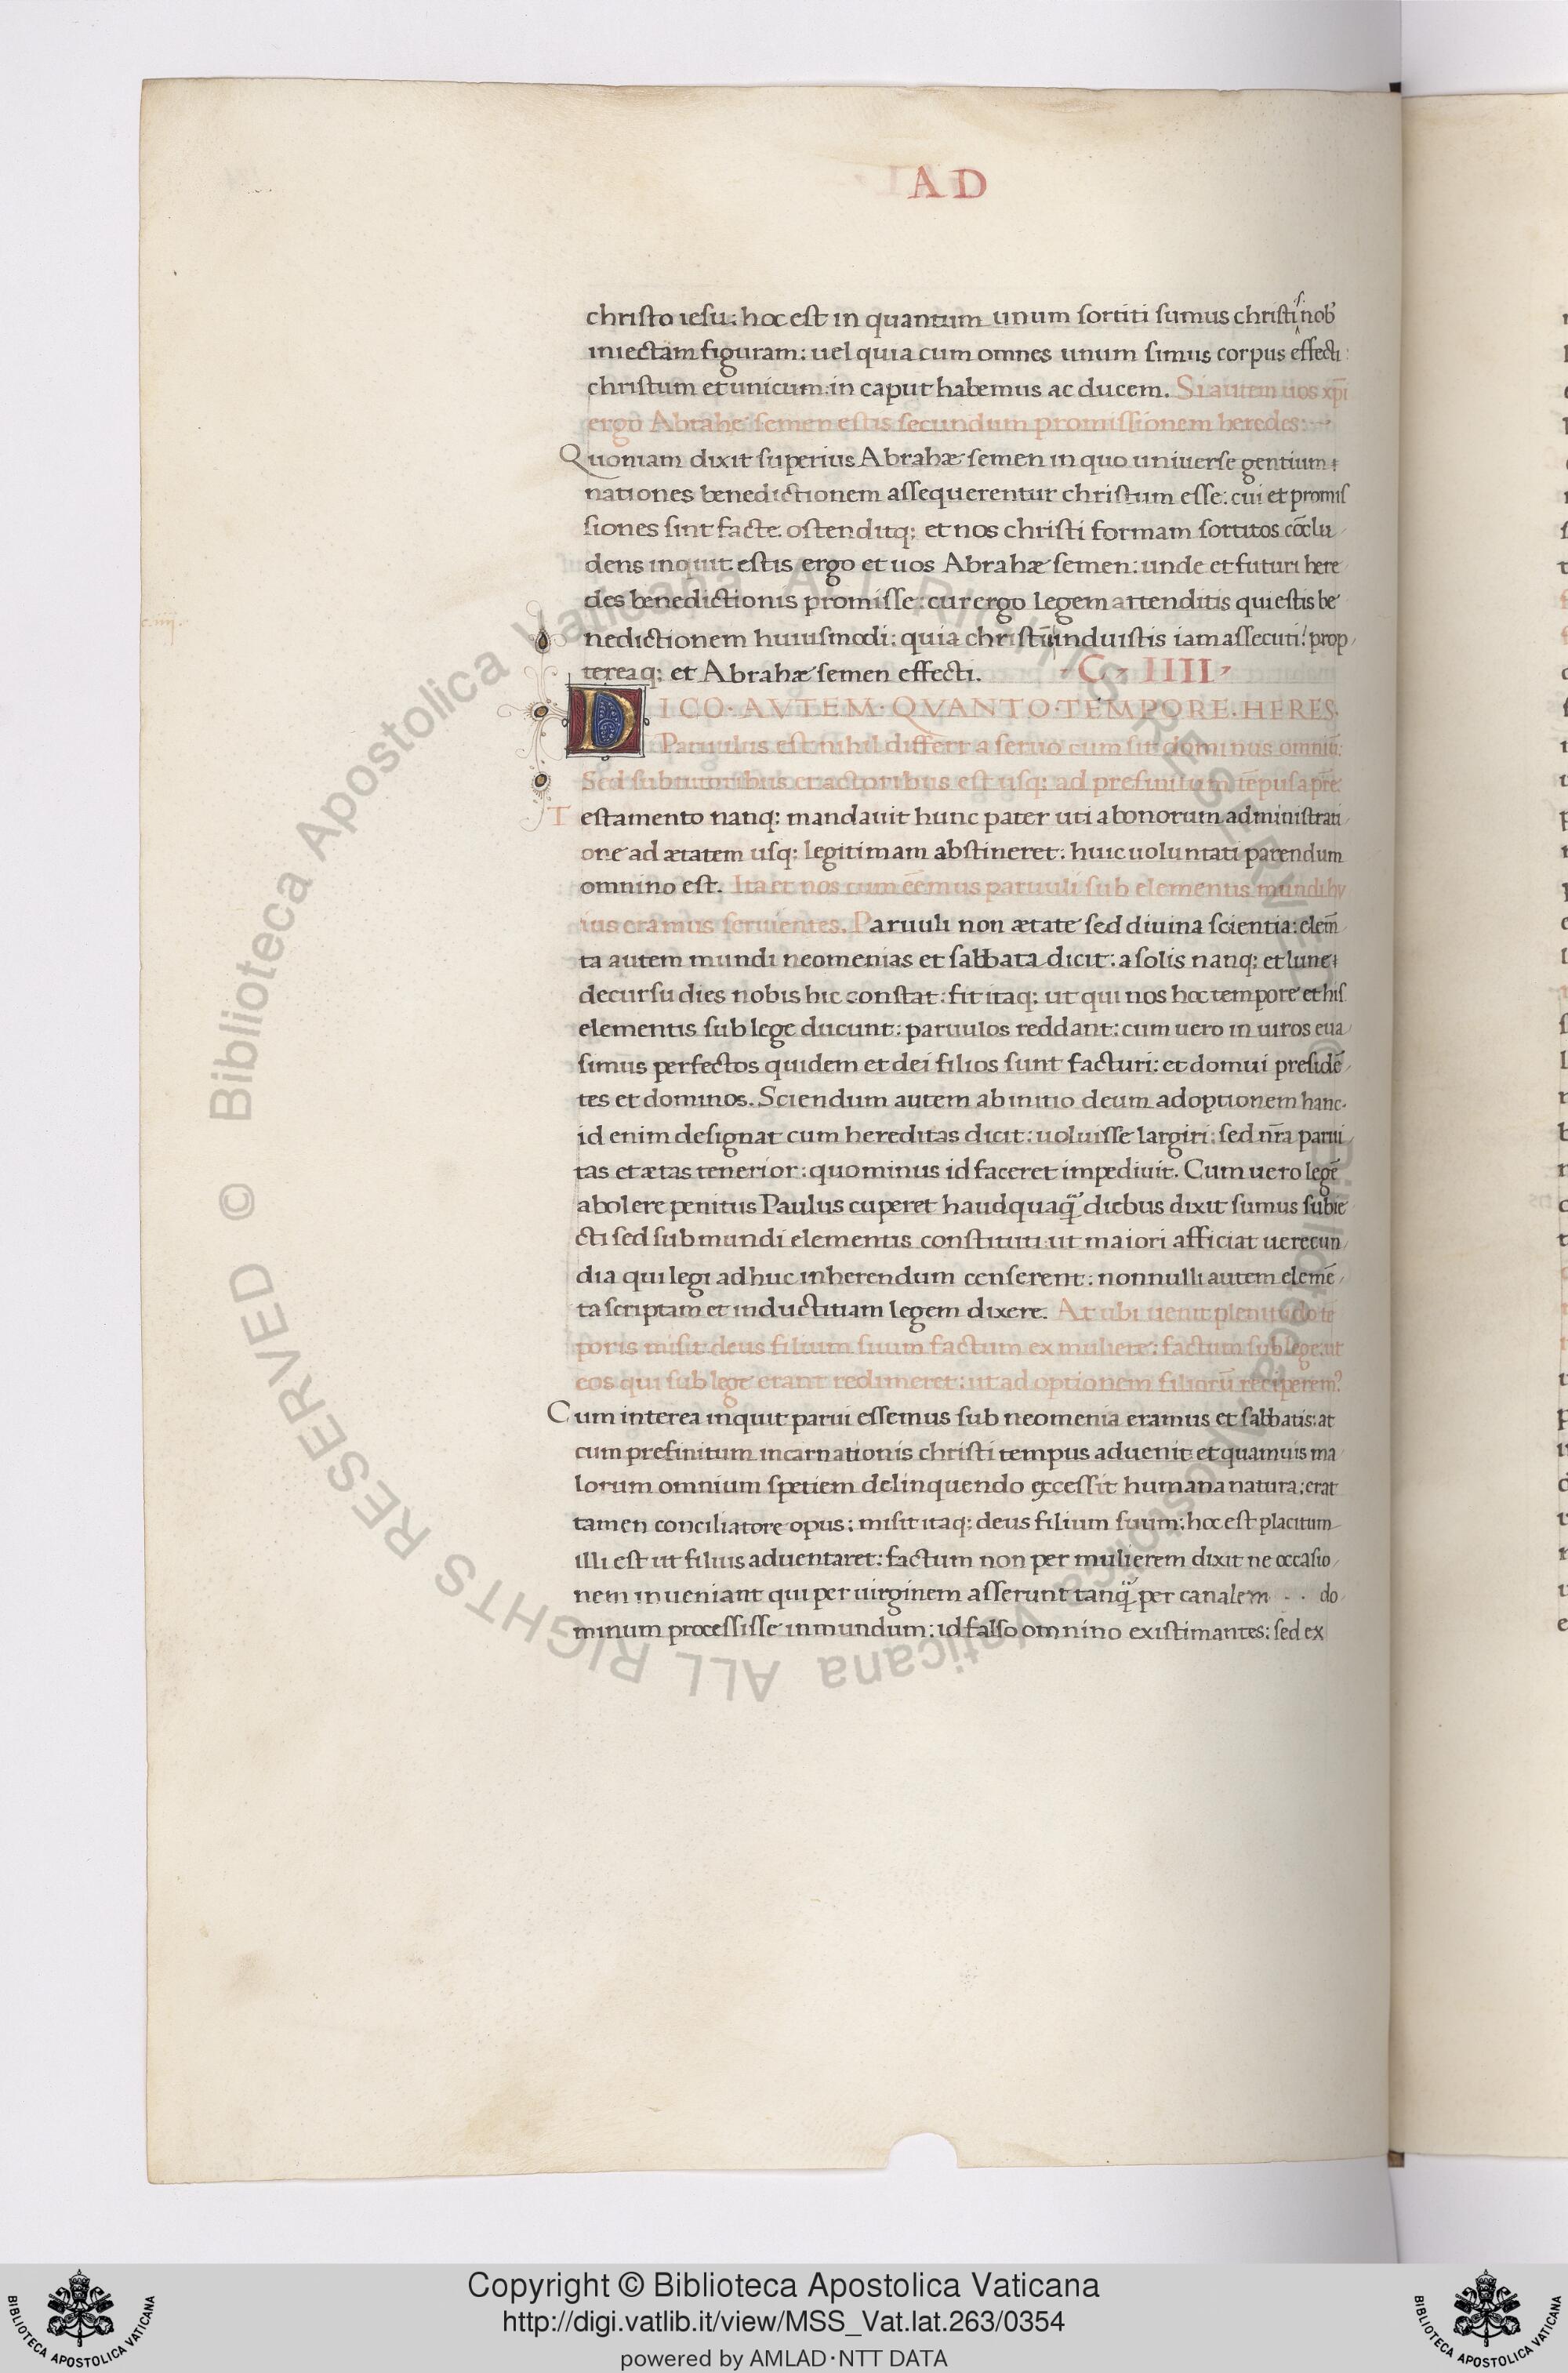 AD
christo iesu: hoc est in quantum unum sortiti sumus christi s. nob'
iniectam figuram: uel quia cum omnes unum simus corpus effecti:
christum et unicum in caput habemus ac ducem. Si autem uos xpi
ergo Abrahe semen estis secundum promissionem heredes:
Quoniam dixit superius Abrahæ semen in quo uniuerse gentium
nationes benedictionem assequerentur christum esse: cui et promis
siones sint facte. ostenditq; et nos christi formam sortitos cōclu
dens inquit. estis ergo et uos Abrahæ semen: unde et futuri here
des benedictionis promisse: cur ergo legem attenditis qui estis be
nedictionem huiusmodi: quia christū induistis iam assecuti: prop
tereaq; et Abrahæ semen effecti. C. IIII
DICO·AVTEM·QVANTO·TEMPORE·HERES·
Paruulus est nihil differt a seruo cum sit dominus omniū:
Sed sub tutoribus et actoribus est usq; ad prefinitum tēpus a pr̄e
Testamento nanq; mandauit hunc pater uti a bonorum administrati
one ad ætatem usq; legitimam abstineret: huic uoluntati parendum
omnino est. Ita et nos cum eēmus paruuli sub elementis mundi hu
ius eramus seruientes. Paruuli non ætate sed diuina scientia: elem̄
ta autem mundi neomenias et sabbata dicit: a solis nanq; et lune
decursu dies nobis hic constat: fit itaq; ut qui nos hoc tempore et his
elementis sub lege ducunt: paruulos reddant: cum uero in uiros eua
simus perfectos quidem et dei filios sunt facturi: et domui presidē
tes et dominos. Sciendum autem ab initio deum adoptionem hanc
id enim designat cum hereditas dicit: uoluisse largiri: sed nr̄a parui
tas et ætas tenerior: quominus id faceret impediuit. Cum uero legē
abolere penitus Paulus cuperet haudquaq̄ diebus dixit sumus subie
cti sed sub mundi elementis constituti ut maiori afficiat uerecun
dia qui legi adhuc inherendum censerent: nonnulli autem elemē
ta scriptam et inductitiam legem dixere. At ubi uenit plenitudo tē
poris misit deus filium suum factum ex muliere: factum sub lege: ut
eos qui sub lege erant redimeret: ut adoptionem filiorū reciperem?
Cum interea inquit parui essemus sub neomenia eramus et sabbatis: at
cum prefinitum incarnationis christi tempus aduenit et quamuis ma
lorum omnium spetiem delinquendo excessit humana natura: erat
tamen conciliatore opus: misit itaq; deus filium suum: hoc est placitum
illi est ut filius aduentaret: factum non per mulierem dixit ne occasio
nem inueniant qui per uirginem asserunt tanq̄ per canalem do
minum processisse in mundum: id falso omnino existimantes: sed ex
© Biblioteca Apostolica Vaticana ALL RIGHTS RESERVED
© Biblioteca Apostolica Vaticana ALL RIGHTS RESERVED
Copyright © Biblioteca Apostolica Vaticana
http://digi.vatlib.it/view/MSS_Vat.lat.263/0354
powered by AMLAD·NTT DATA
BIBLIOTECA APOSTOLICA VATICANA
BIBLIOTECA APOSTOLICA VATICANA